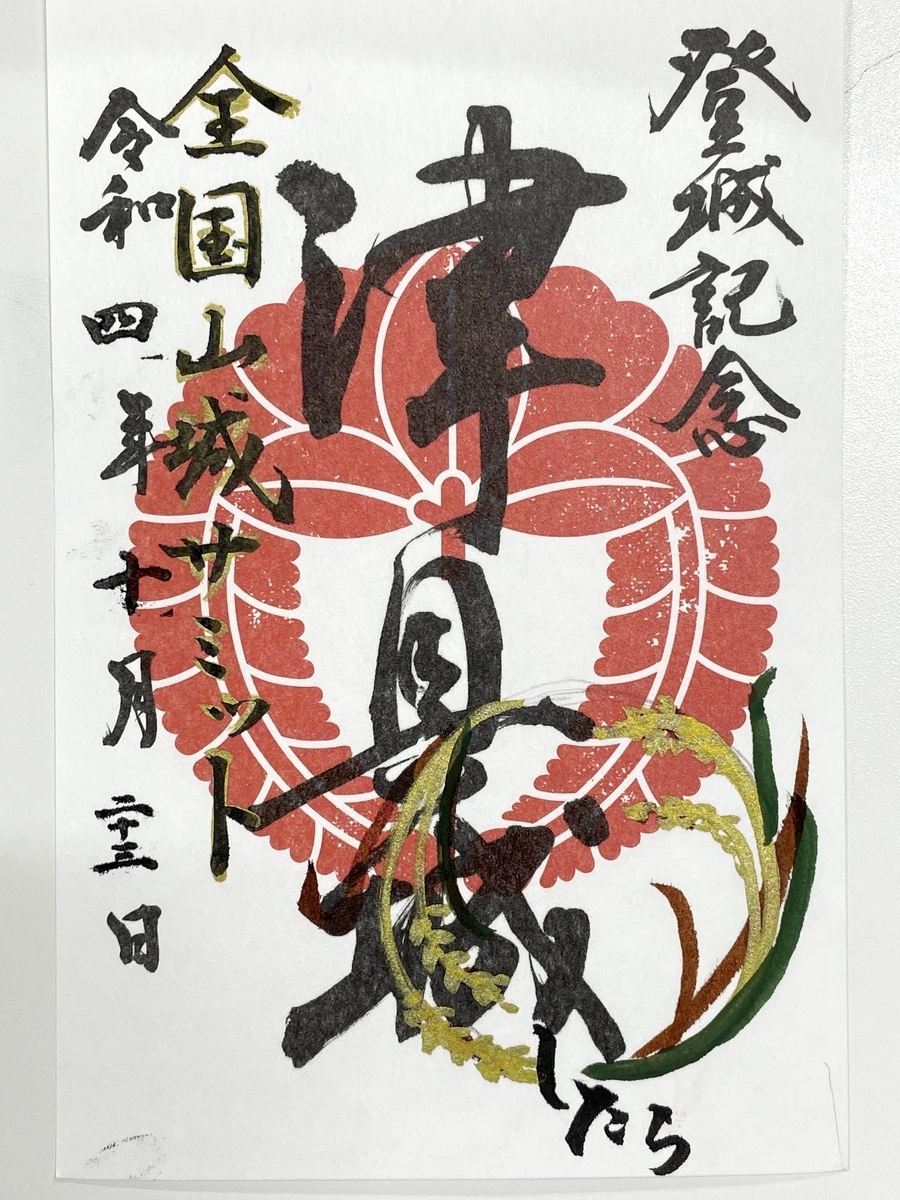 登城記念
津具城
したら
全国山城サミット
令和四年十月二十三日